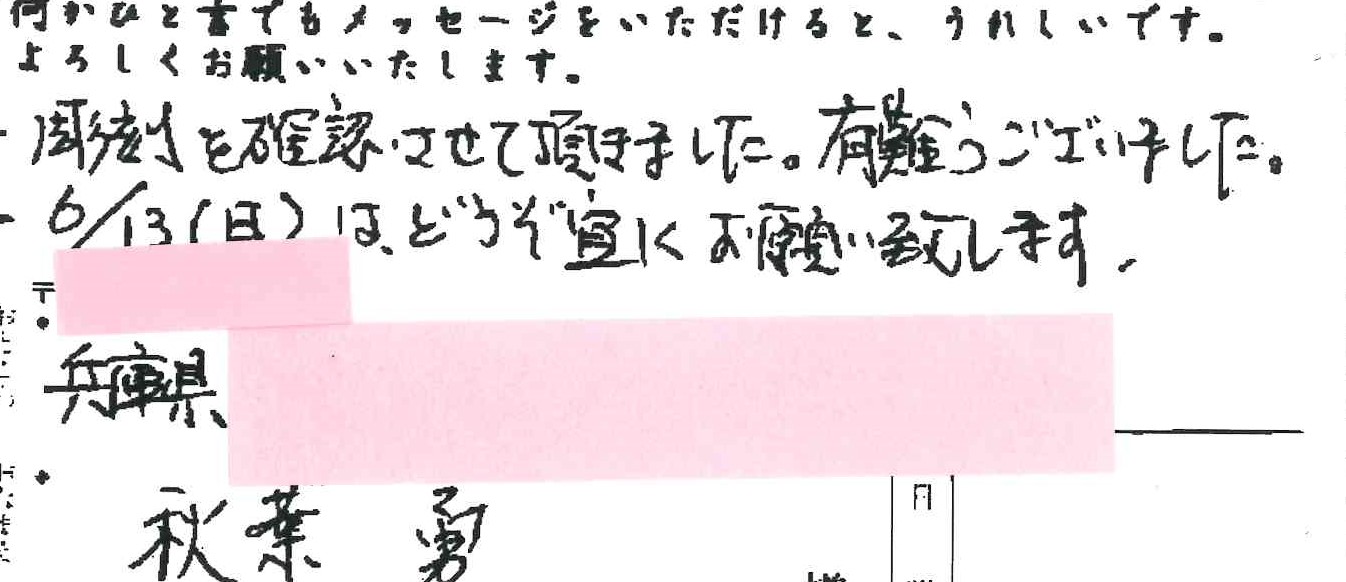 何かひと言でもメッセージをいただけると、うれしいです。
よろしくお願いいたします。
彫刻を確認させて頂きました。有難うございました。
6/13(日)は、どうぞ宜しくお願い致します。
〒
兵庫県
秋葉 勇
月